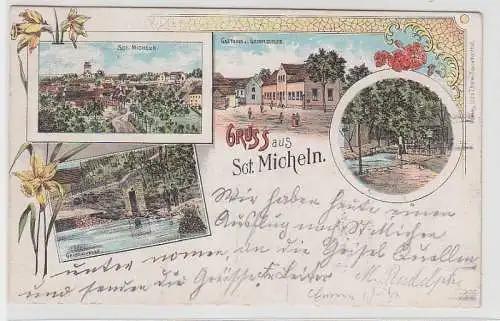 Sct. Micheln
Gasthaus z. Geiselquelle
GRUSS aus
Sct. Micheln.
Geiselquelle
Wir haben heute einen
Ausflug nach St. Micheln
unter nomen, an die Geisel Quellen
und senden die Grüsse
M. Rudolph